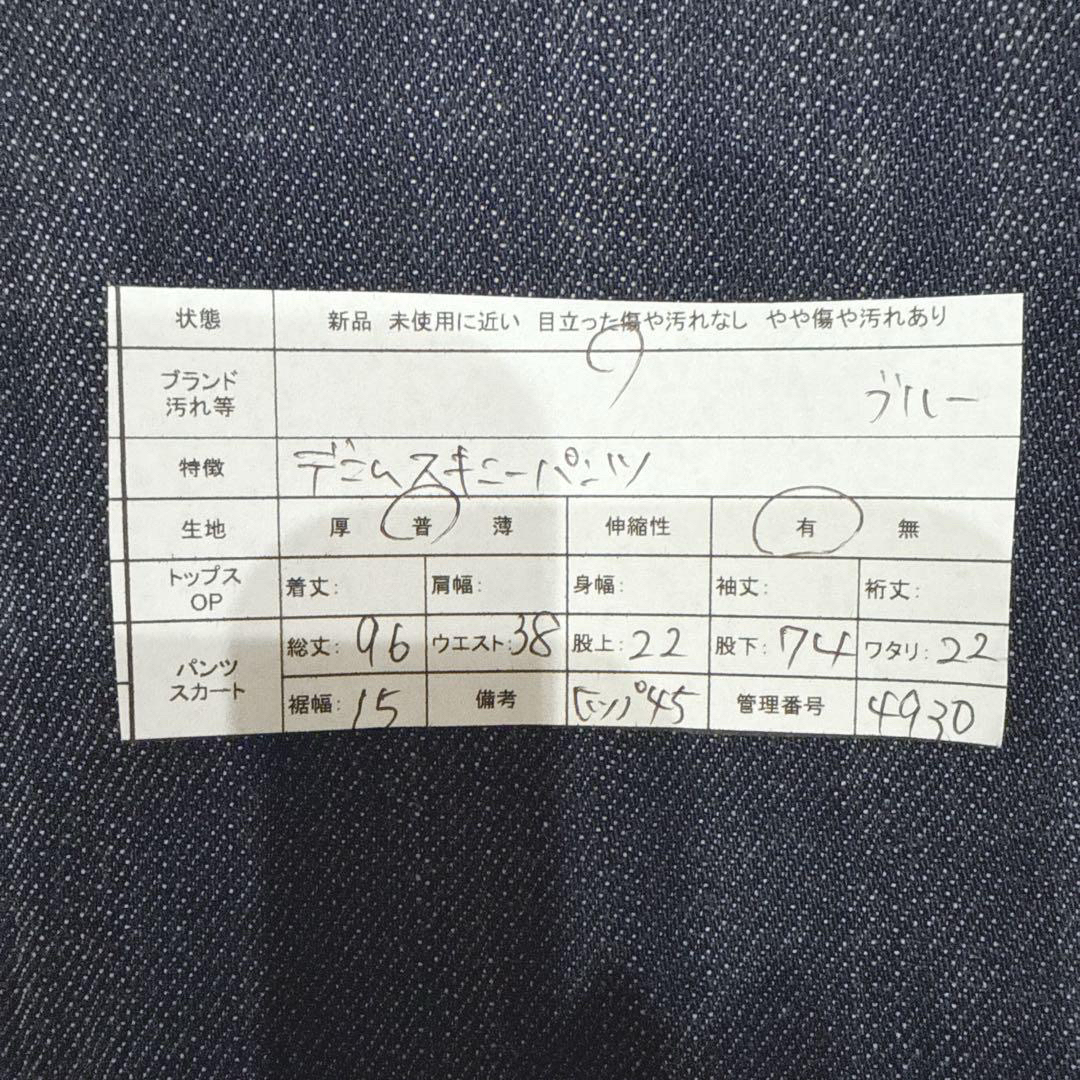 状態 新品 未使用に近い 目立った傷や汚れなし やや傷や汚れあり
ブランド
汚れ等 ブルー
特徴 デニムスキニーパンツ
生地 厚 普 薄 伸縮性 有 無
トップス
OP 着丈: 肩幅: 身幅: 袖丈: 裄丈:
パンツ
スカート 総丈: 96 ウエスト: 38 股上: 22 股下: 74 ワタリ: 22
裾幅: 15 備考 ヒップ45 管理番号 4930